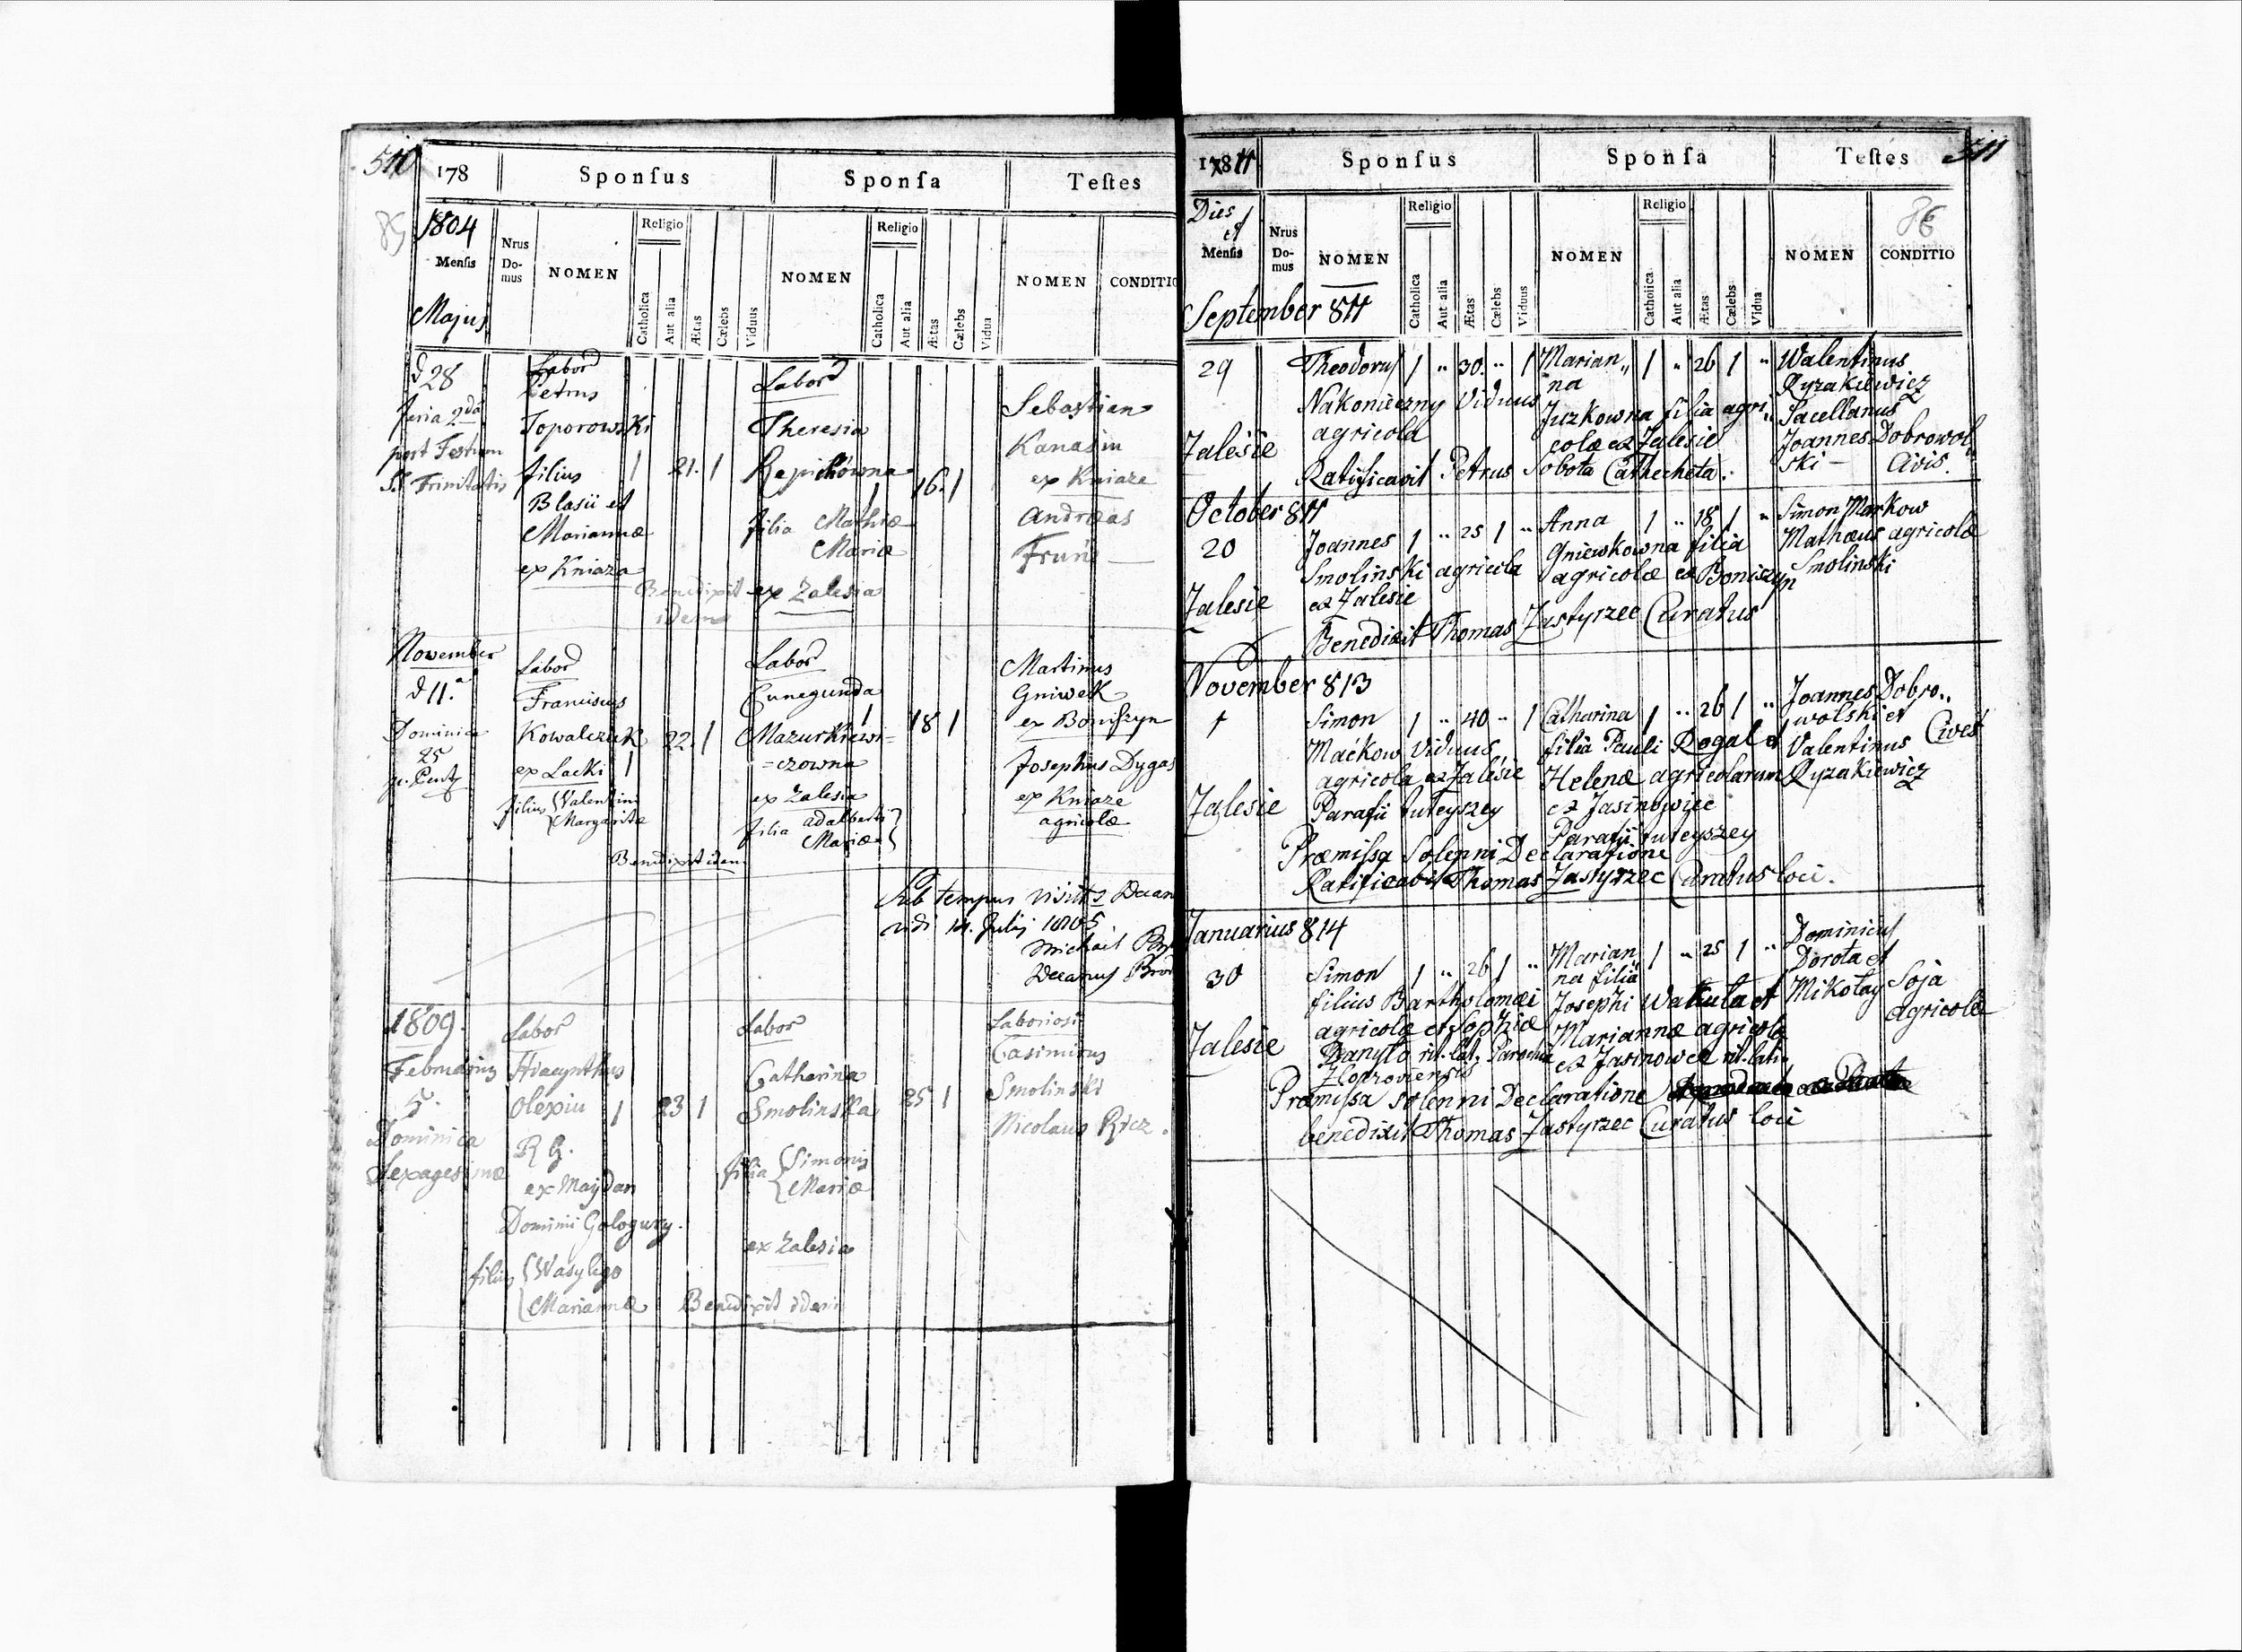 510
178
Sponsus
Sponsa
Testes
85
1804
Mensis
Majus
Nrus Domus
NOMEN
Religio
Catholica
Aut alia
Ætas
Cælebs
Viduus
NOMEN
Religio
Catholica
Aut alia
Ætas
Cælebs
Vidua
NOMEN
CONDITIO
d 28
feria 2da
post Festum
SS Trinitatis
Labor
Petrus
Toporowski
filius 1 21. 1
Blasii et
Mariannæ
ex Kniaza
Labor
Theresia
filia Mathiæ
Mariæ
ex Zalesia
1 16. 1
Sebastian
Kanasin
ex Kniaze
Andræas
Benedixit
idem
November
d 11.a
Dominica
25
p. Pent
Labor
Franciscus
Kowalczuk 22. 1
ex Lacki 1
filius Valentini
Margaritæ
Labor
Cunegunda
Mazurkiewi=
=czowna
ex Zalesia
filia Adalberti
Mariæ
1 18 1
Martinus
Gniwek
ex Boniszyn
Josephus Dygas
ex Kniaze
agricolæ
Benedixit idem
Sub tempus visit Decan
vidi 14. Julij 1805
Michael
Decanus Brod
1809.
Februarius
5.
Dominica
Sexagesimæ
Labor
Hiacynthus
Olexiu 1 23 1
R G.
ex Majdan
Dominii Gologury.
filius Wasylego
Mariannæ
Labor
Catharina
Smolinska 25 1
filia Simonis
Mariæ
ex Zalesia
Laboriosi
Casimirus
Smolinski
Nicolaus Ricz.
Benedixit idem
1811
Sponsus
Sponsa
Testes
511
86
Dies et
Mensis
Nrus Domus
NOMEN
Religio
Catholica
Aut alia
Ætas
Cælebs
Viduus
NOMEN
Religio
Catholica
Aut alia
Ætas
Cælebs
Vidua
NOMEN
CONDITIO
September 811
29
Zalesie
Theodorus 1 " 30. " 1
Nakonieczny Viduus
agricola
Marian„ 1 " 26 1 "
na
Juzkowna filia agri„
colæ ex Zalesie
Walentinus
Ryzakiewicz
Sacellanus
Joannes Dobrowol„
ski — Civis.
Ratificavit Petrus Sobota Cathecheta.
October 811
20
Zalesie
Joannes 1 " 25 1 "
Smolinski agricola
ex Zalesie
Anna 1 " 18 1 "
Gniewkowna filia
agricolæ ex Boniszyn
Simon Markow
Mathæus agricolæ
Smolinski
Benedixit Thomas Zastyrzec Curatus
November 813
1
Zalesie
Simon 1 " 40 " 1
Maćkow Viduus
agricola ex Zalesie
Parafii tuteyszey
Catharina 1 " 26 1 "
filia Pauli Rogal et
Helenæ agricolarum
ex Jasinowiec
Parafii tuteyszey
Joannes Dobro„
wolski et
Valentinus Cives
Ryzakiewicz
Præmissa Solenni Declaratione
Ratificavit Thomas Zastyrzec Curatus loci.
Januarius 814
30
Zalesie
Simon 1 " 26 1 "
filius Bartholomæi
agricolæ et Sophiæ
Danyło rit. lat. Parochiæ
Marian„ 1 " 25 1 "
na filia
Josephi Wakula et
Mariannæ agricolæ
ex Jasinowce rit. latin
Dominicus
Dorota et
Mikołay Soja
agricolæ
Præmissa Solenni Declaratione
benedixit Thomas Zastyrzec Curatus loci